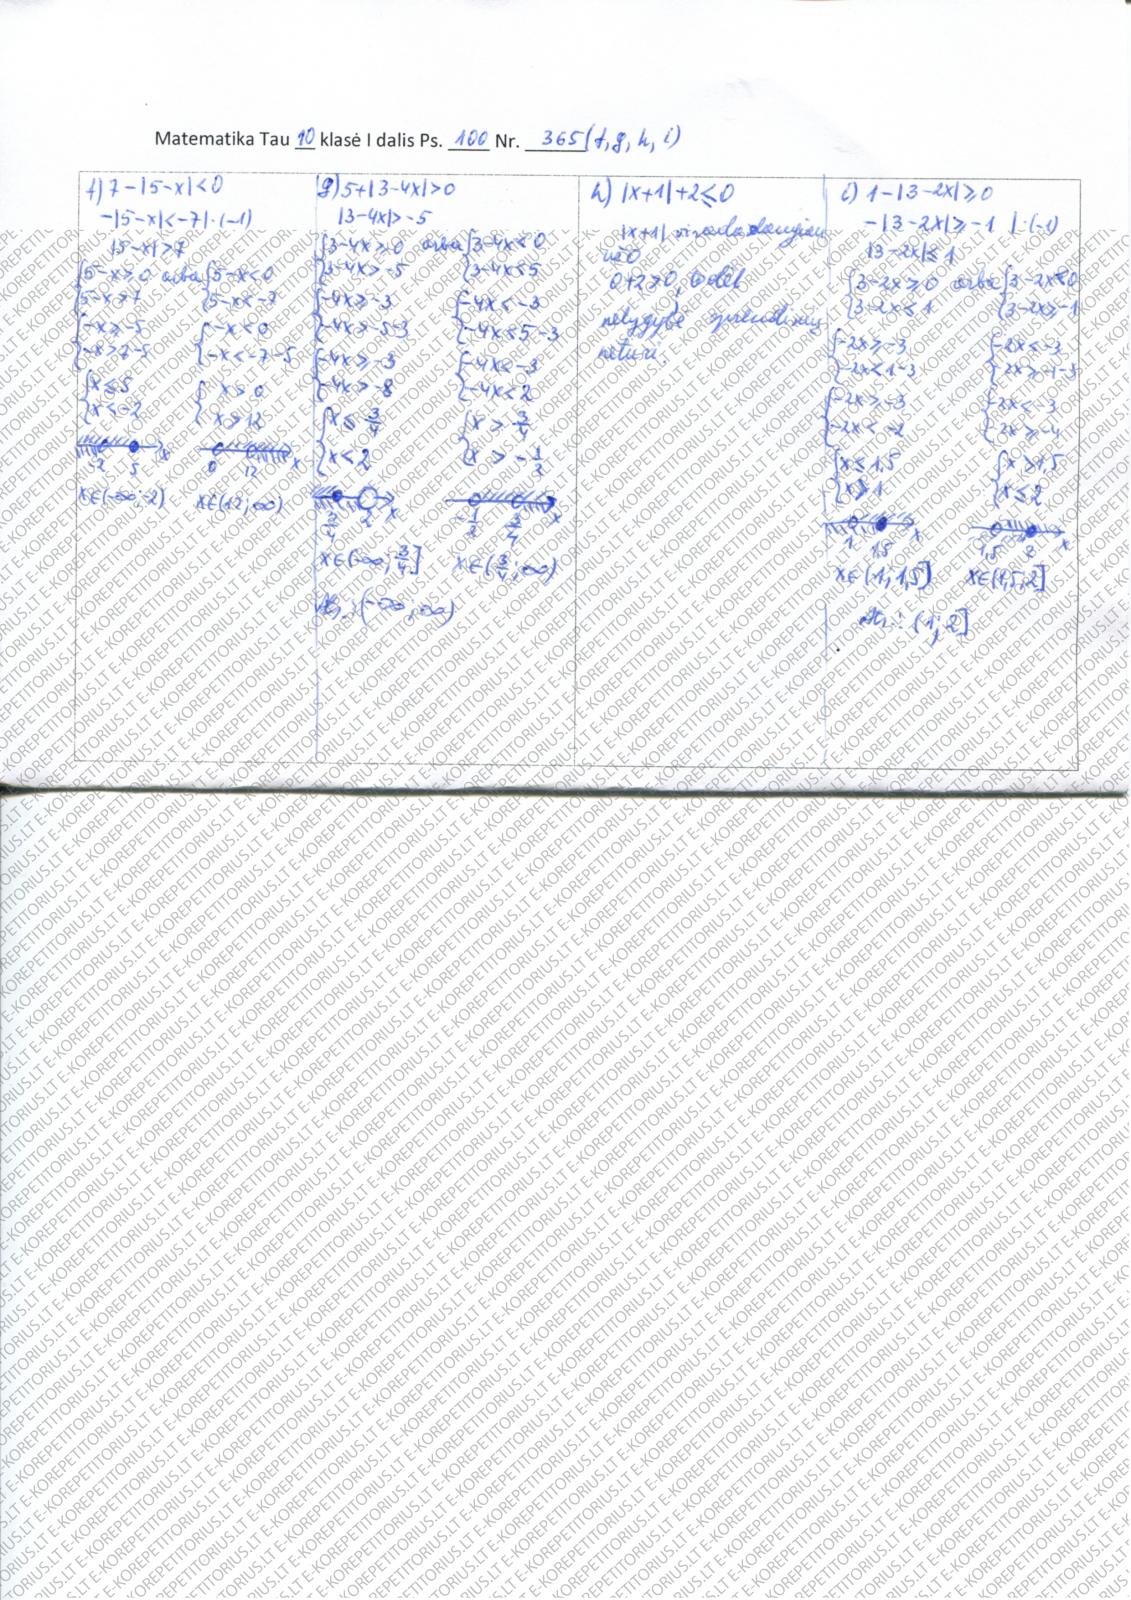 Matematika Tau 10 klasė I dalis Ps. 100 Nr. 365(f,g,h,i)
f) 7-|5-x|<0
-|5-x|<-7|·(-1)
|5-x|>7
{5-x≥0 arba {5-x<0
5-x>7 5-x<-7
{-x≥-5 {-x<0
-x>7-5 -x<-7-5
{x≤5 {x>0
x<-2 x>12
-2 5 x 0 12 x
x∈(-∞;-2) x∈(12;∞)
g) 5+|3-4x|>0
|3-4x|>-5
{3-4x≥0 arba {3-4x<0
3-4x>-5 3-4x<5
{-4x≥-3 {-4x<-3
-4x>-5-3 -4x<5-3
{-4x≥-3 {-4x<-3
-4x>-8 -4x<2
{x≤3/4 {x>3/4
x<2 x>-1/2
3/4 2 x -1/2 3/4 x
x∈(-∞;3/4] x∈(3/4;∞)
Ats.:(-∞;∞)
h) |x+1|+2≤0
|x+1| visada daugiau
už 0
0+2>0, todėl
nelygybė sprendinių
neturi.
i) 1-|3-2x|≥0
-|3-2x|≥-1 |·(-1)
|3-2x|≤1
{3-2x≥0 arba {3-2x<0
3-2x≤1 3-2x≥-1
{-2x≥-3 {-2x<-3
-2x<1-3 -2x≥-1-3
{-2x≥-3 {-2x<-3
-2x<-2 -2x≥-4
{x≤1,5 {x>1,5
x>1 x≤2
1 1,5 x 1,5 2 x
x∈(1;1,5] x∈(1,5;2]
Ats.: (1;2]
E-KOREPETITORIUS.LT